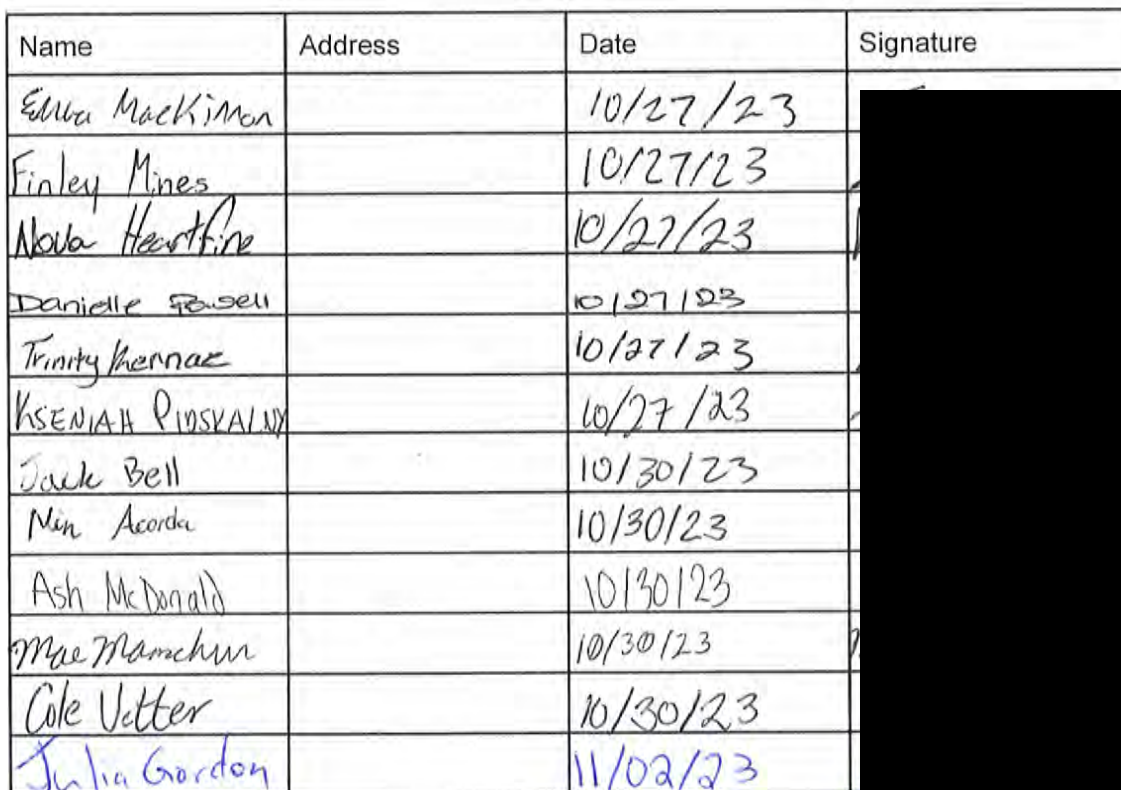 Name Address Date Signature
MacKinnon 10/27/23
Finley Mines 10/27/23
Nova Heartfire 10/27/23
Danielle Powell 10/27/23
Trinity 10/27/23
KSENIAH PIDSKALNY 10/27/23
Jack Bell 10/30/23
Min Acorda 10/30/23
Ash McDonald 10/30/23
Mae Mamchur 10/30/23
Cole Vetter 10/30/23
Julia Gordon 11/02/23